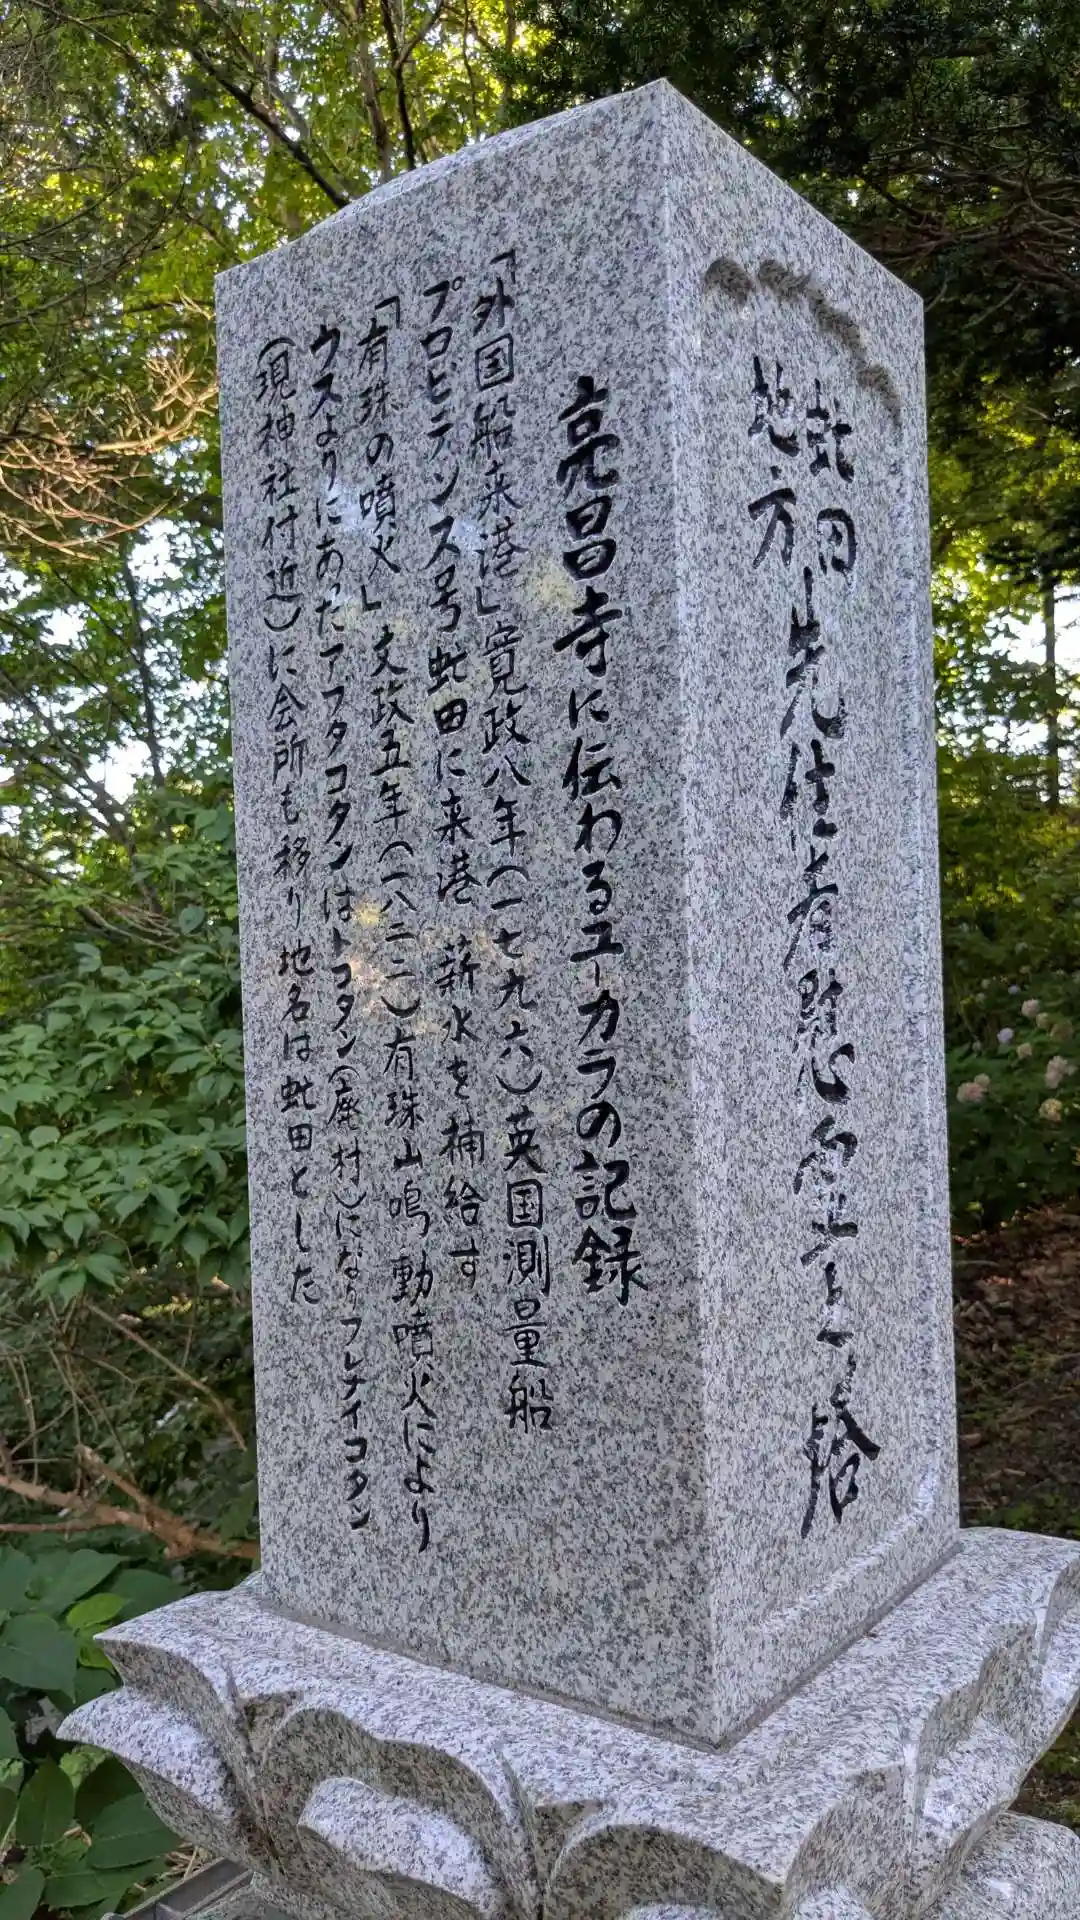 虻田
地方
先住者慰霊之塔
亮昌寺に伝わるユーカラの記録
「外国船来港」寛政八年(一七九六)英国測量船
プロビデンス号虻田に来港 薪水を補給す
「有珠の噴火」文政五年(一八二二)有珠山鳴動噴火により
ウスよりにあったアブタコタンはトコタン(廃村)になりフレナイコタン
(現神社付近)に会所も移り地名は虻田とした